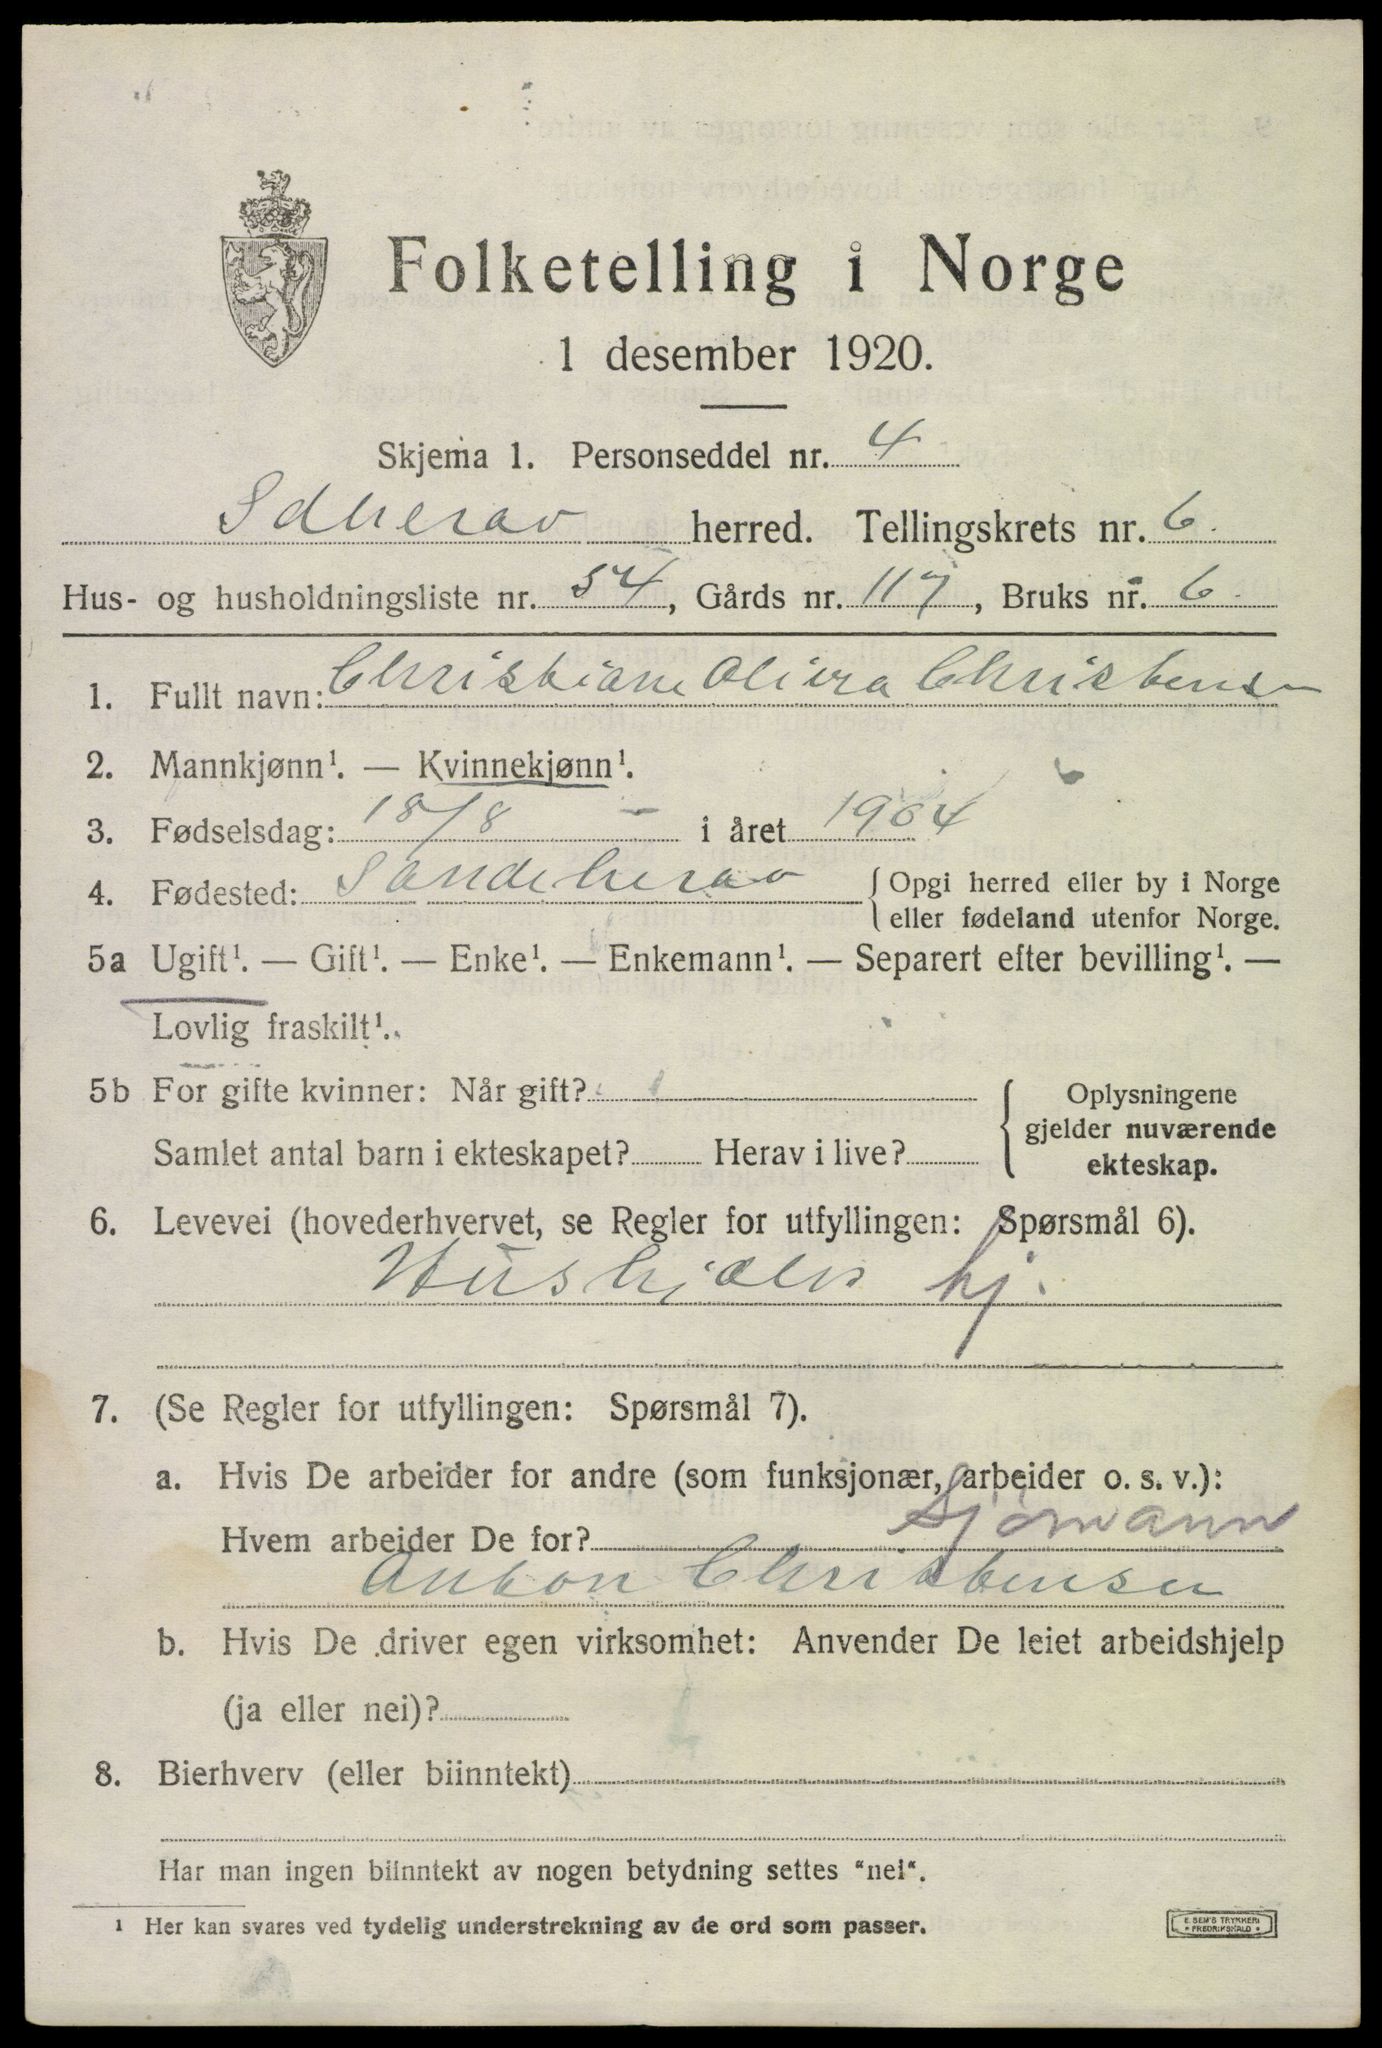 Folketelling i Norge
1 desember 1920.
Skjema 1. Personseddel nr. 4
Sdherav herred. Tellingskrets nr. 6.
Hus- og husholdningsliste nr. 54, Gårds nr. 117, Bruks nr. 6.
1. Fullt navn: Christiane Olivra Christensen
2. Mannkjønn¹. — Kvinnekjønn¹.
3. Fødselsdag: 18/8 i året 1904
4. Fødested: Sandeherav {Opgi herred eller by i Norge
eller fødeland utenfor Norge.
5a Ugift¹. — Gift¹. — Enke¹. — Enkemann¹. — Separert efter bevilling¹. —
Lovlig fraskilt¹.
5b For gifte kvinner: Når gift? { Oplysningene
gjelder nuværende
Samlet antal barn i ekteskapet? Herav i live?
ekteskap.
6. Levevei (hovederhvervet, se Regler for utfyllingen: Spørsmål 6).
Hushjælp hj.
7. (Se Regler for utfyllingen: Spørsmål 7).
a. Hvis De arbeider for andre (som funksjonær, arbeider o. s. v.):
Hvem arbeider De for? Sjömann
Anton Christensen
b. Hvis De driver egen virksomhet: Anvender De leiet arbeidshjelp
(ja eller nei)?
8. Bierhverv (eller biinntekt)
Har man ingen biinntekt av nogen betydning settes "nei".
¹ Her kan svares ved tydelig understrekning av de ord som passer.
E. SEM'S TRYKKERI
* FREDRIKSHALD *